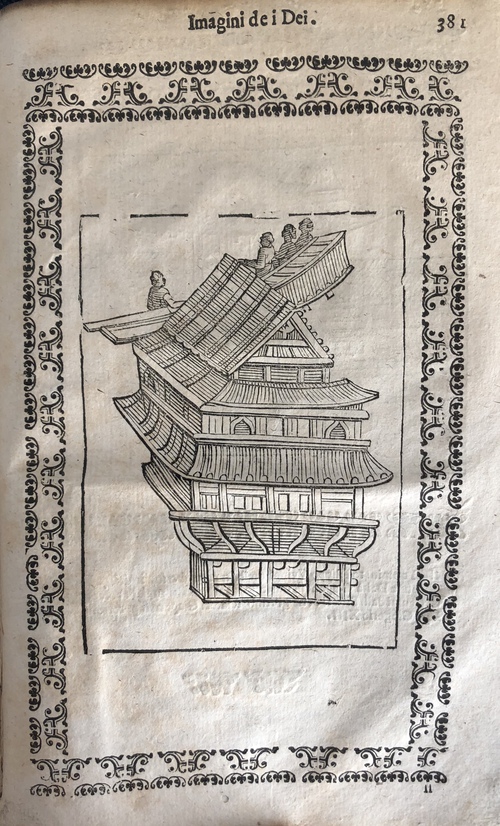 Imagini de i Dei.
381